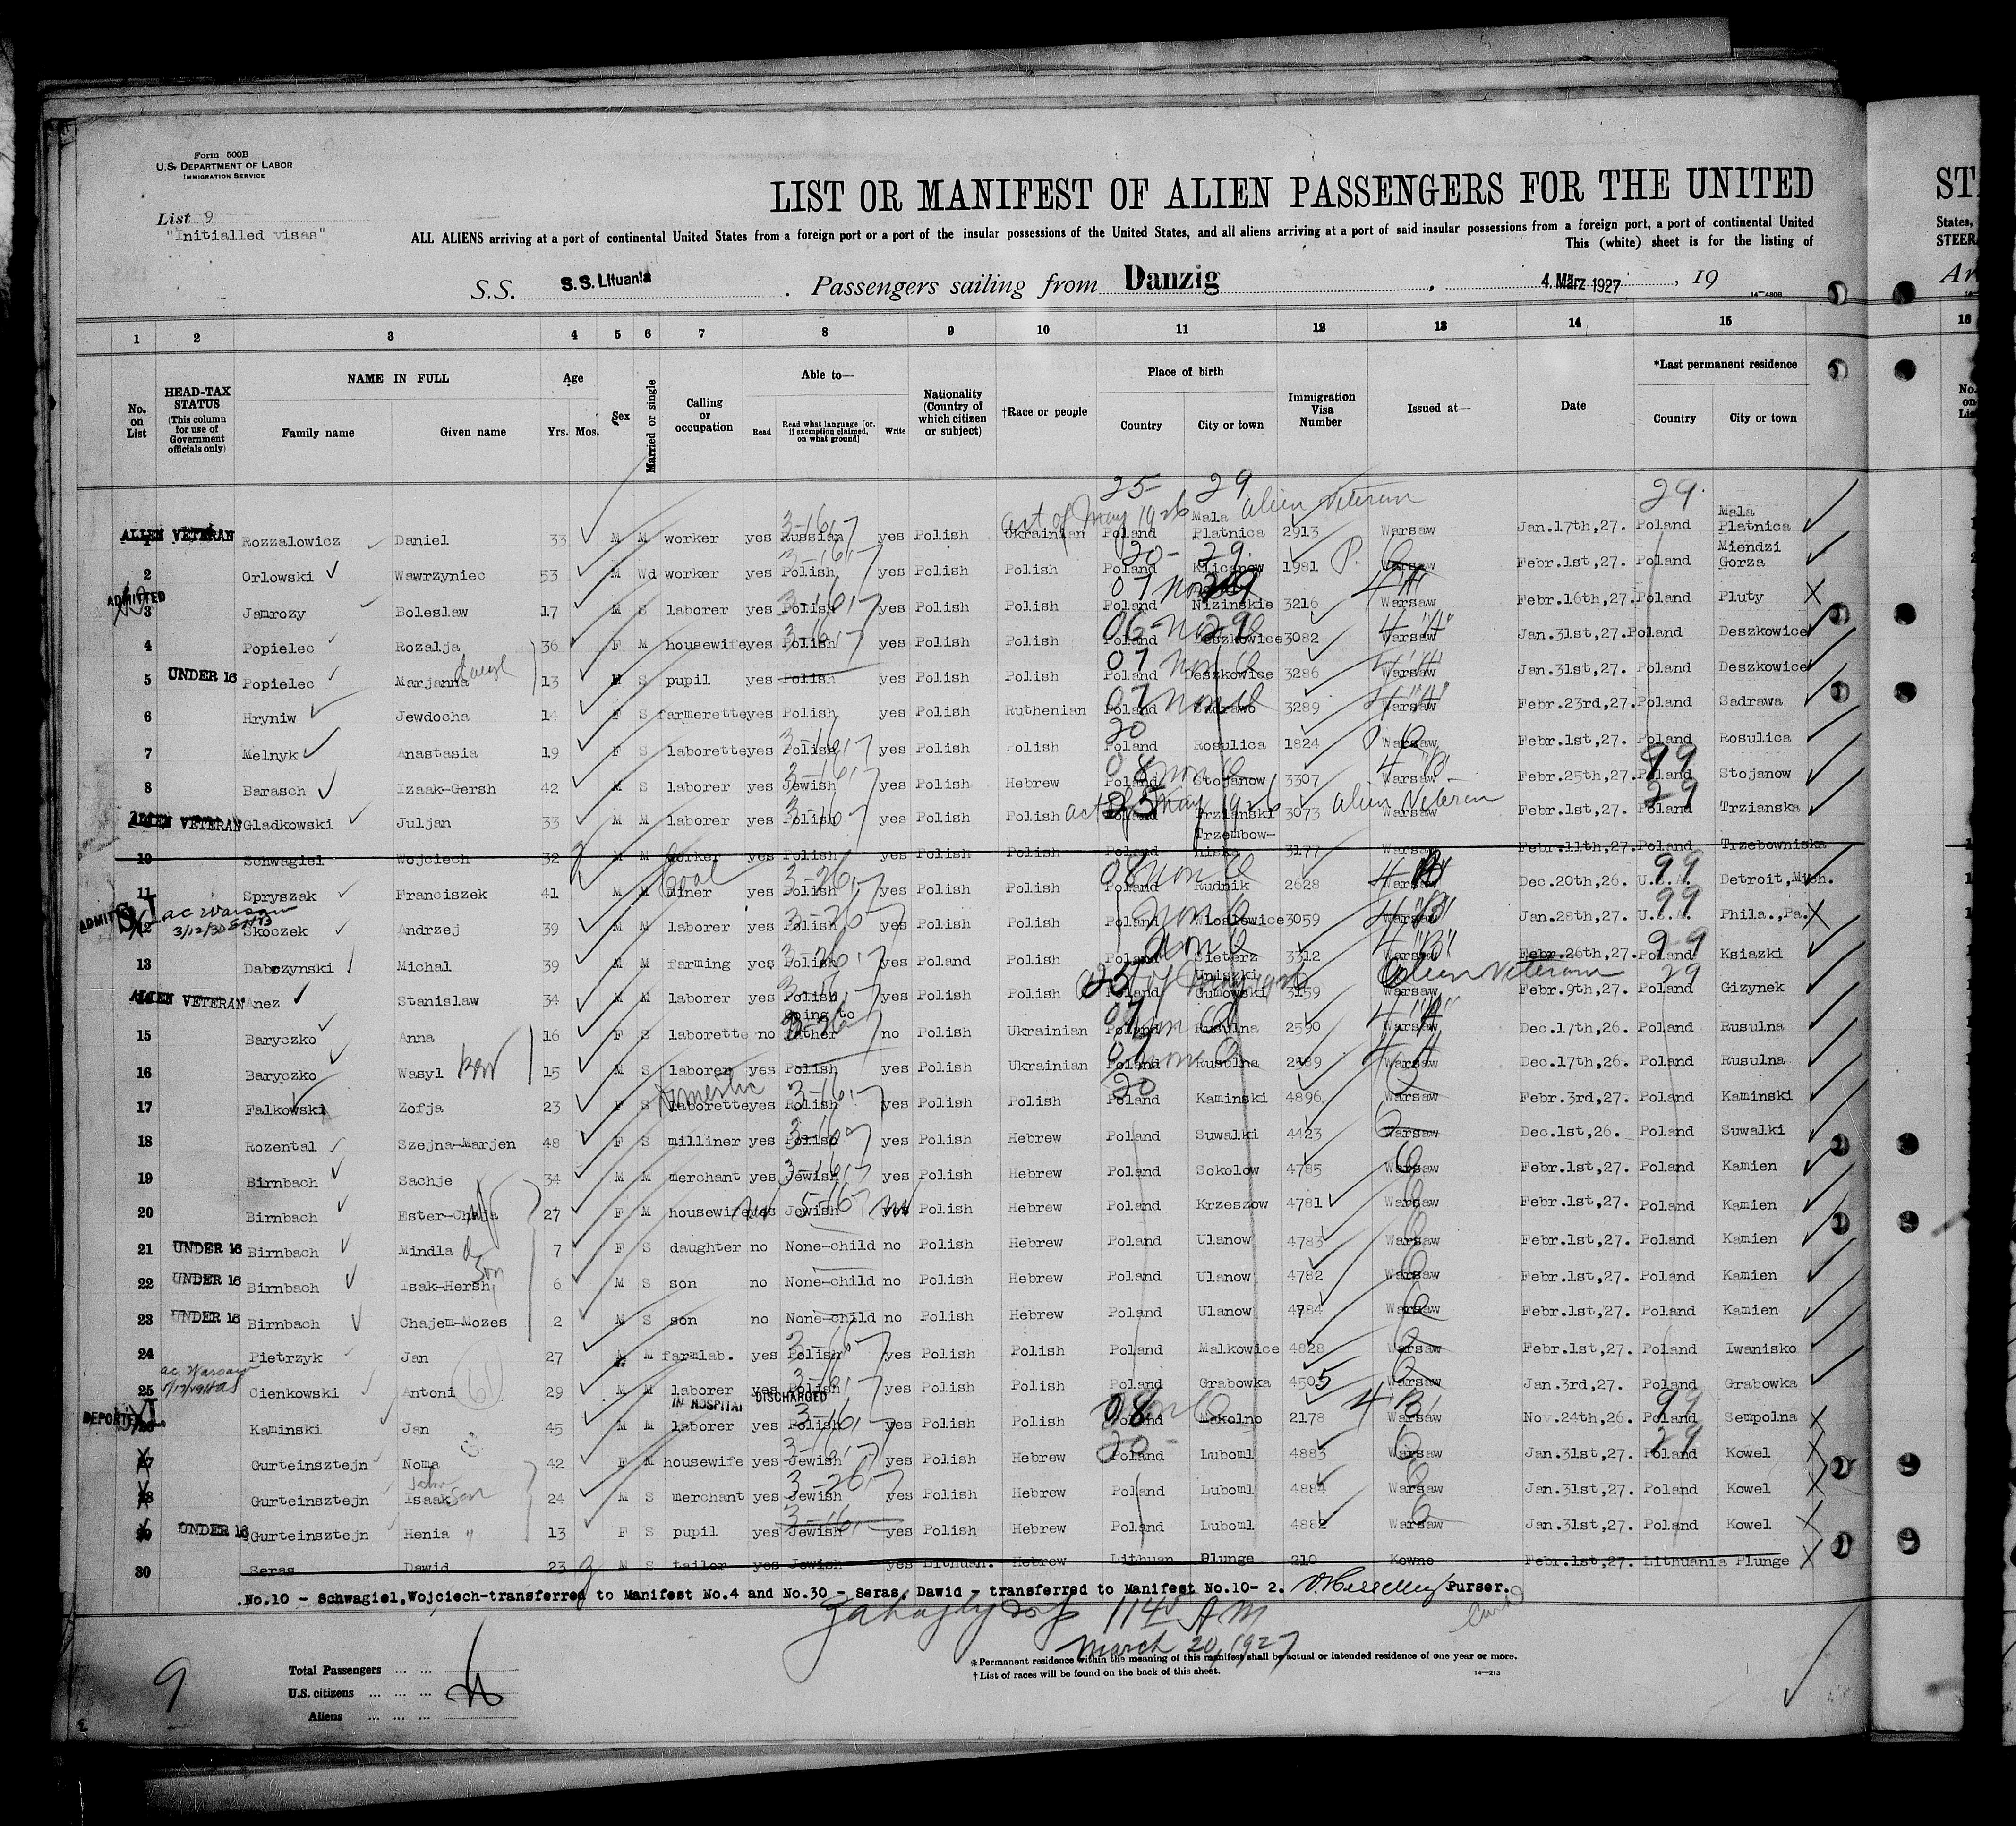 Form 500B
U.S. DEPARTMENT OF LABOR
IMMIGRATION SERVICE
List 9
"Initialled visas"
LIST OR MANIFEST OF ALIEN PASSENGERS FOR THE UNITED
ST
ALL ALIENS arriving at a port of continental United States from a foreign port or a port of the insular possessions of the United States, and all aliens arriving at a port of said insular possessions from a foreign port, a port of continental United
States,
This (white) sheet is for the listing of
STEER
S.S. S.S. Lituania . Passengers sailing from Danzig , 4. März 1927 , 19
Ar
1 2 3 4 5 6 7 8 9 10 11 12 13 14 15 16
No. on List
HEAD-TAX STATUS (This column for use of Government officials only)
NAME IN FULL Family name Given name
Age Yrs. Mos.
Sex
Married or single
Calling or occupation
Able to— Read Read what language (or, if exemption claimed, on what ground) Write
Nationality (Country of which citizen or subject)
†Race or people
Place of birth Country City or town
Immigration Visa Number
Issued at—
Date
*Last permanent residence Country City or town
25 29 29
act of May 1926 alien Veteran
ALIEN VETERAN Rozzalowicz Daniel 33 M M worker yes Russian yes Polish Ukrainian Poland Mala Platnica 2913 Warsaw Jan.17th,27. Poland Mala Platnica
2 Orlowski Wawrzyniec 53 M Wd worker yes Polish yes Polish Polish Poland Klicanow 1981 Warsaw Febr.1st,27. Poland Miendzi Gorza
ADMITTED 3 Jamrozy Boleslaw 17 M S laborer yes Polish yes Polish Polish Poland Nizinskie 3216 Warsaw Febr.16th,27. Poland Pluty
4 Popielec Rozalja 36 F M housewife yes Polish yes Polish Polish Poland Deszkowice 3082 Warsaw Jan.31st,27. Poland Deszkowice
5 UNDER 16 Popielec Marjanna 13 S pupil yes Polish yes Polish Polish Poland Deszkowice 3286 Warsaw Jan.31st,27. Poland Deszkowice
6 Hryniw Jewdocha 14 F S farmerette yes Polish yes Polish Ruthenian Poland Sadrawo 3289 Warsaw Febr.23rd,27. Poland Sadrawa
7 Melnyk Anastasia 19 F S laborette yes Polish yes Polish Polish Poland Rosulica 1824 Warsaw Febr.1st,27. Poland Rosulica
8 Barasch Izaak-Gersh 42 M S laborer yes Jewish yes Polish Hebrew Poland Stojanow 3307 Warsaw Febr.25th,27. Poland Stojanow
act of May 1926 alien Veteran
ALIEN VETERAN Gladkowski Juljan 33 M M laborer yes Polish yes Polish Polish Poland Trzianski 3073 Warsaw Febr.1st,27. Poland Trzianska
10 Schwagiel Wojciech 32 M M worker yes Polish yes Polish Polish Poland Trzembow-niska 3177 Warsaw Febr.11th,27. Poland Trzebowniska
11 Spryszak Franciszek 41 M M Coal miner yes Polish yes Polish Polish Poland Rudnik 2628 Warsaw Dec.20th,26. U.S.A. Detroit,Mich.
12 Skoczek Andrzej 39 M M laborer yes Polish yes Polish Polish Poland Wloslowice 3059 Warsaw Jan.28th,27. U.S.A. Phila.,Pa.
13 Dabrzynski Michal 39 M M farming yes Polish yes Poland Polish Poland Sieterz 3312 Warsaw Febr.26th,27. Poland Ksiazki
ALIEN VETERAN Anez Stanislaw 34 M M laborer yes Polish yes Polish Polish Poland Uniszki Gumowski 3159 Warsaw Febr.9th,27. Poland Gizynek
15 Baryczko Anna 16 F S laborette no going to father no Polish Ukrainian Poland Rusulna 2590 Warsaw Dec.17th,26. Poland Rusulna
16 Baryczko Wasyl 15 M S laborer yes Polish yes Polish Ukrainian Poland Rusulna 2589 Warsaw Dec.17th,26. Poland Rusulna
17 Falkowski Zofja 23 F S Domestic laborette yes Polish yes Polish Polish Poland Kaminski 4896 Warsaw Febr.3rd,27. Poland Kaminski
18 Rozental Szejna-Marjen 48 F S milliner yes Polish yes Polish Hebrew Poland Suwalki 4423 Warsaw Dec.1st,26. Poland Suwalki
19 Birnbach Sachje 34 M M merchant yes Jewish yes Polish Hebrew Poland Sokolow 4785 Warsaw Febr.1st,27. Poland Kamien
20 Birnbach Ester-Chaja 27 F M housewife yes Jewish yes Polish Hebrew Poland Krzeszow 4781 Warsaw Febr.1st,27. Poland Kamien
21 UNDER 16 Birnbach Mindla 7 F S daughter no None-child no Polish Hebrew Poland Ulanow 4783 Warsaw Febr.1st,27. Poland Kamien
22 UNDER 16 Birnbach Isak-Hersh 6 M S son no None-child no Polish Hebrew Poland Ulanow 4782 Warsaw Febr.1st,27. Poland Kamien
23 UNDER 16 Birnbach Chajem-Mozes 2 M S son no None-child no Polish Hebrew Poland Ulanow 4784 Warsaw Febr.1st,27. Poland Kamien
24 Pietrzyk Jan 27 M M farmlab. yes Polish yes Polish Polish Poland Malkowice 4828 Warsaw Febr.1st,27. Poland Iwanisko
25 Cienkowski Antoni 29 M M laborer yes Polish yes Polish Polish Poland Grabowka 4505 Warsaw Jan.3rd,27. Poland Grabowka
IN HOSPITAL DISCHARGED
DEPORTED Kaminski Jan 45 M M laborer yes Polish yes Polish Polish Poland Makolno 2178 Warsaw Nov.24th,26. Poland Sempolna
27 Gurteinsztejn Noma 42 F M housewife yes Jewish yes Polish Hebrew Poland Luboml 4883 Warsaw Jan.31st,27. Poland Kowel
28 Gurteinsztejn Isaak Son 24 M S merchant yes Jewish yes Polish Hebrew Poland Luboml 4884 Warsaw Jan.31st,27. Poland Kowel
UNDER 16 Gurteinsztejn Henia " 13 F S pupil yes Jewish yes Polish Hebrew Poland Luboml 4882 Warsaw Jan.31st,27. Poland Kowel
30 Seras Dawid 23 M S tailor yes Jewish yes Lithuan. Hebrew Lithuan Plunge 210 Kowno Febr.1st,27. Lithuania Plunge
.No.10 - Schwagiel,Wojciech-transferred to Manifest No.4 and No.30 - Seras, Dawid - transferred to Manifest No.10- 2. Purser.
1145 AM
March 20, 1927
*Permanent residence within the meaning of this manifest shall be actual or intended residence of one year or more.
†List of races will be found on the back of this sheet.
14—213
9
Total Passengers ... ...
U.S. citizens ... ... ...
Aliens ... ... ...